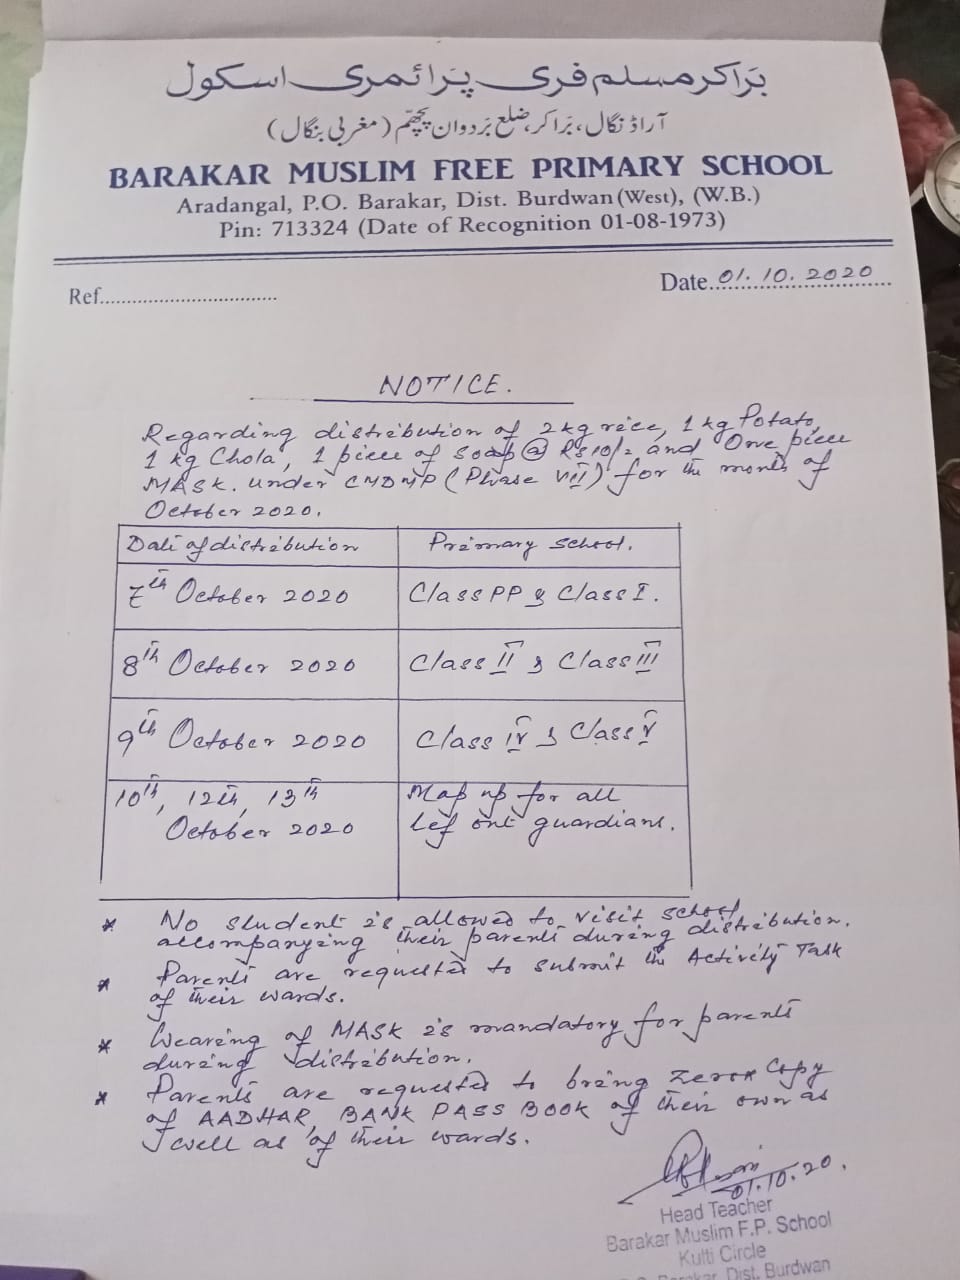 بَراکر مسلم فری پرائمری اسکول
آراڈنگال، بَراکر، ضلع بَردوان پچھّم (مغربی بنگال)
BARAKAR MUSLIM FREE PRIMARY SCHOOL
Aradangal, P.O. Barakar, Dist. Burdwan (West), (W.B.)
Pin: 713324 (Date of Recognition 01-08-1973)
Ref............................... Date..01.10.2020
NOTICE.
Regarding distribution of 2kg rice, 1kg Potato,
1 kg Chola, 1 piece of soap @ Rs10/= and One piece
MASK. under CMDMP (Phase VII) for the month of
October 2020.
Date of distribution Primary School.
7th October 2020 Class PP & Class I.
8th October 2020 Class II & Class III
9th October 2020 Class IV & Class V
10th, 12th, 13th Map up for all
October 2020 lef out guardians.
* No student is allowed to visit school
accompanying their parents during distribution.
* Parents are requested to submit the Activity Task
of their wards.
* Wearing of MASK is mandatory for parents
during distribution.
* Parents are requested to bring Zerox Copy
of AADHAR, BANK PASS BOOK of their own as
well as of their wards.
01.10.20.
Head Teacher
Barakar Muslim F.P. School
Kulti Circle
Barakar, Dist. Burdwan